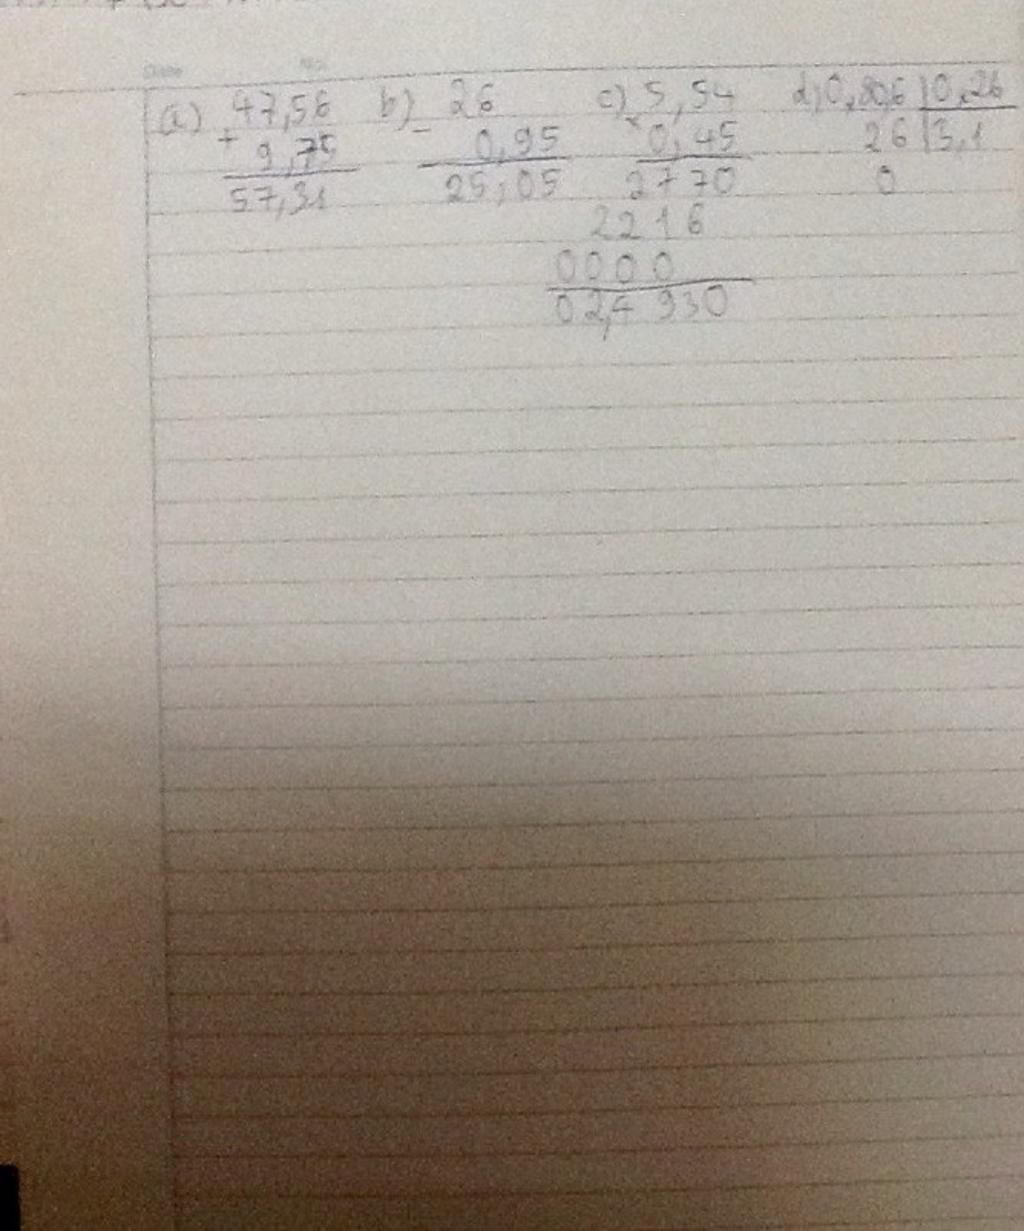 a) 47,56 b) 26 c) 5,54 d) 0,806 0,26
+ 9,75 - 0,95 x 0,45 26 3,1
57,31 25,05 2770 0
2216
0000
02,4930